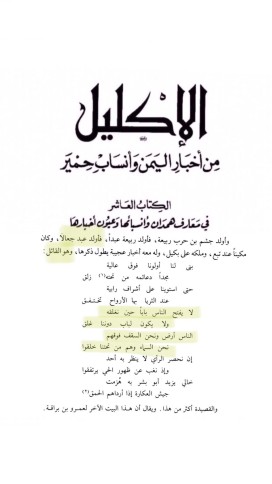 الإكليل
مِن أخبار اليمن وأنساب حمير
الكتاب العاشر
في معارف همدان وأنسابها وعيون أخبارها
وأولد جشم بن حرب ربيعة، فأولد ربيعة عبداً، فأولد عبد جعالاً، وكان
مكيناً عند تبع، وملكه على بكيل، وله معه أخبار عجيبة يطول ذكرها، وهو القائل:
بنى لنا أولونا فوق عالية
مجداً دعائمه من تحته (١) زلق
حتى استوينا على أشراف رابية
عند الثريا بها الأرواح تختفق
لا يفتح الناس باباً حين نغلقه
ولا يكون لباب دوننا غلق
الناس أرض ونحن السقف فوقهم
نحن السماء وهم من تحتنا خلقوا
إن نحضر الرأي لا ينظر به أحد
وإذ نغب عن ظهور الحي يرتفقوا
خالي يزيد أبو بشر به هُزمت
جيش العكارة إذا أرداهم الحمق (٢)
والقصيدة أكثر من هذا. ويقال أن هذا البيت الآخر لعمرو بن براقة.